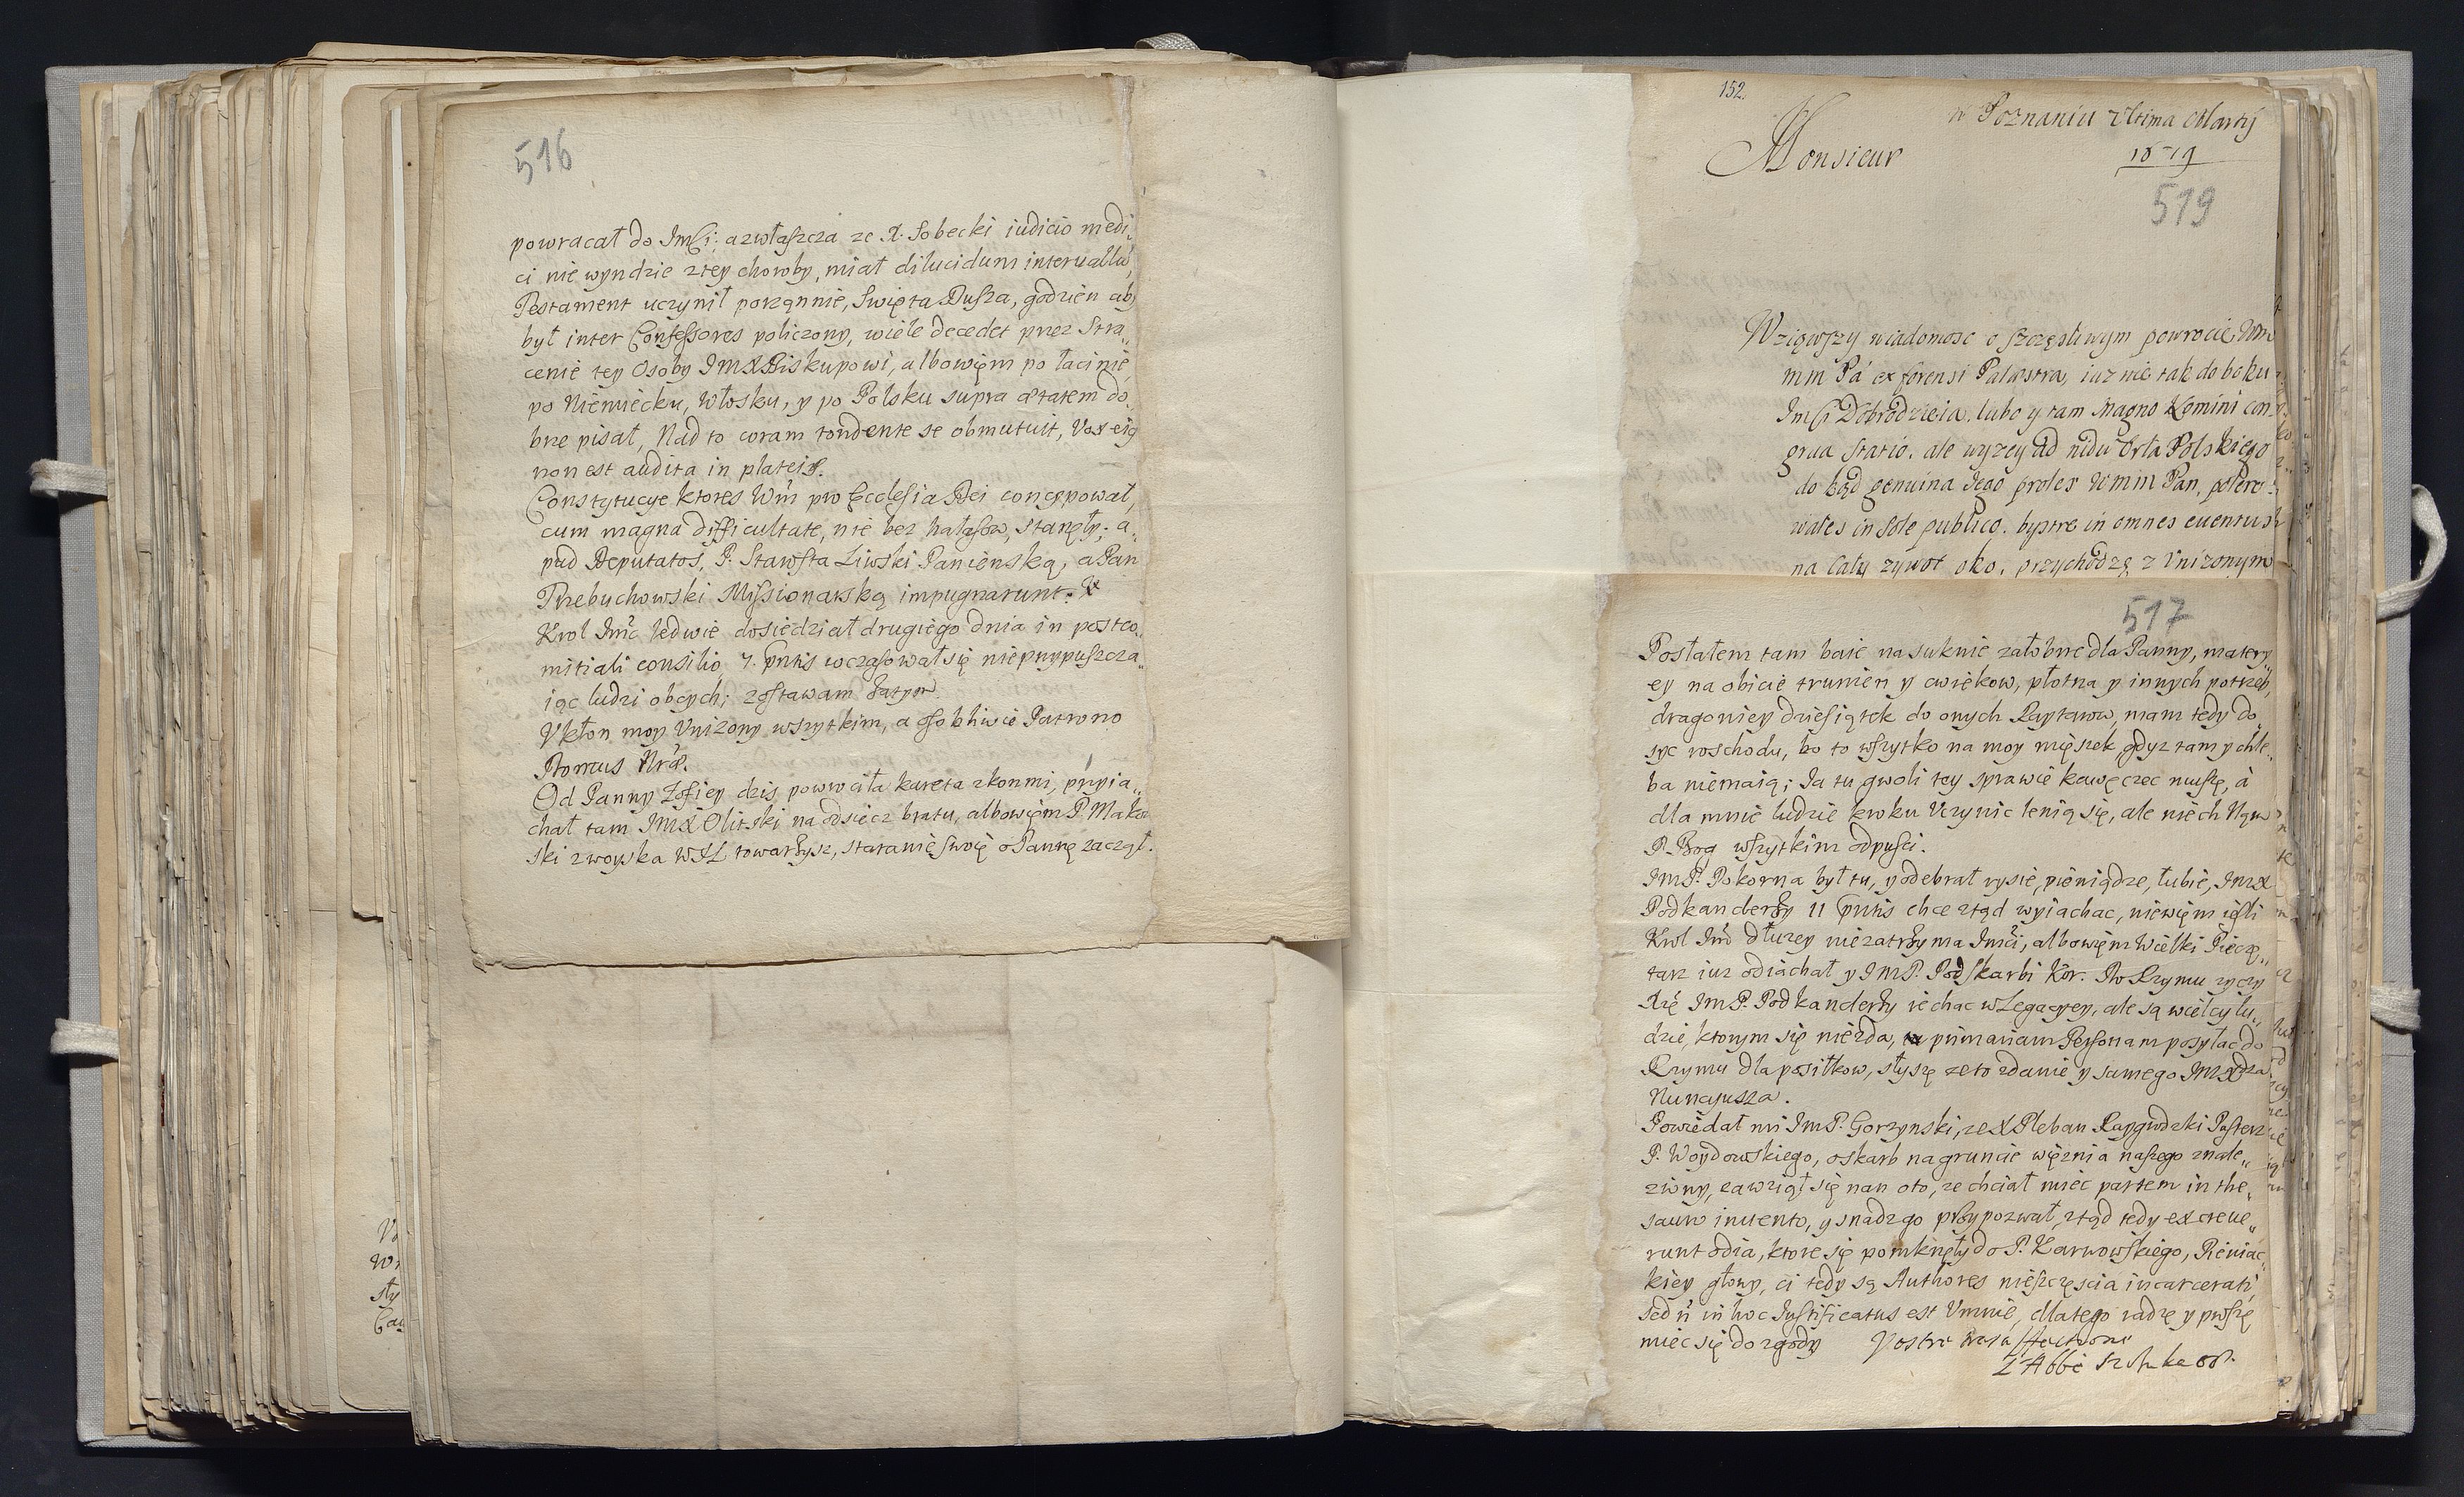 516
powracał do Jmsci; azwłaszcza ze X. Sobecki iudicio medi„
ci nie wyndzie ztey choroby, miał dilucidum interuallu,
Testament uczynił porządnie, Swięta Dusza, godzien aby
był inter Confessores policzony, wiele decedet przez Stra„
cenie tey Osoby JMX Biskupowi, albowięm po łacinie,
po Niemiecku, Włosku, y po Polsku supra ætatem do„
brze pisał, Nad to coram tondente se obmutuit, Vox eig
non est audita in plateis.
Constytucye ktores Wm pro Ecclesia Dei concypował,
cum magna difficultate, nie bez hałasow, stanęły; a„
pud Deputatos, P. Starosta Liwski Panienską, a Pan
Przebuchowski Missionarską impugnarunt.
Krol Jmc ledwie dosiedział drugiego dnia in postco„
mitiali consilio, 7. pntis wczasował się nieprzypuszcza„
iąc ludzi obcych; zostawam zatym
Vkłon moy Vniżony wszytkim, a osobliwie Patrono
Domus Nræ.
Od Panny Zofiey dzis powrociła kareta zkonmi, przyia„
chał tam JMX Oliński na odsiecz bratu, albowięm P. Makow
ski zwoyska WXL towarzysz, staranie swoie o Pannę zaczął.
152.
w Poznaniu Vltima Martij
1679
Monsieur
519
Wziąwszy wiadomosc o szczęsliwym powrocie Wm
mm Pa ex forensi Palæstra, iuz nie tak do boku
Jmsci Dobrodzieia. lubo y tam magno homini con„
grua statio. ale wyzey ad nidu Orła Polskiego
do kąd genuina Jego proles Wmm Pan,
in sole publico. bystre in omnes euentus
na cały zywot oko. przychodzę z Vnizonym
517
Posłałem tam baie na suknie załobne dla Panny, matery„
ey na obicie trumien y cwiekow, płotna y innych potrzeb,
dragoniey dziesiątek do onych Raytarow, mam tedy do„
syc roschodu, bo to wszytko na moy mięszek, gdyz tam y chle„
ba niemaią; Ja tu gwoli tey sprawie kawęczec muszę, à
dla mnie ludzie kroku Vczynic lenią się, ale niech Nąm
P. Bog wszytkim odpusci.
JmP. Pokorna był tu, y odebrał rysie, pieniądze, łubie, JMX
Podkanclerzy 11 pntis chce ztąd wyiachac, niewięm iesli
Krol Jmc dłuzey niezatrzyma Jmsci, albowięm Wielki Pieczę„
tarz iuz odiachał y JMP. Podskarbi Kor. Do Krymu zyczy
Xię JmP. Podkanclerzy iechac w Legacyey, ale są wielcy lu„
dzie, ktorym się niezda, primariam Personam posyłac do
Krymu dla posiłkow, słyszę ze to zdanie y samego JMXdza
Nuncyusza.
Powiedał mi JmP. Gorzynski, ze X Pleban Raygrodzki Pasterz
P. Woydowskiego, o skarb na gruncie więznia naszego znale„
ziony, zawziął się nan oto, ze chciał miec partem in the„
sauro inuento, y snadz go przypozwał, ztąd tedy excreue„
runt odia, ktore się pomknęły do P. Karwowskiego, Pieniac„
kiey głowy, ci tedy są Authores nieszczęscia incarcerati,
sed n in hoc Justificatus est Vmnie, dlatego radzę y proszę
miec się do zgody
L'Abbé